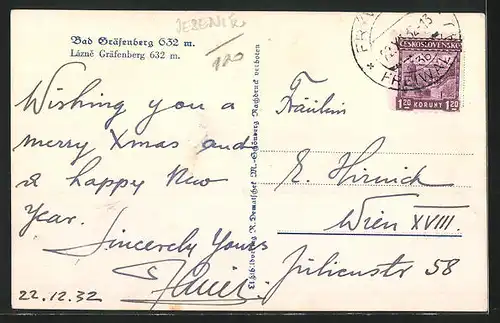 Bad Gräfenberg 632 m.
Lázně Gräfenberg 632 m.
120
Wishing you a
merry Xmas and
a happy New
Year.
Sincerely Yours
22.12.32
Lichtbildverlag R. Dematschek M.-Schönberg Nachdruck verboten
ČESKOSLOVENSKO
1.20 KORUNY 1.20
FREIWAL
Fräulein
E. Hirnich
Wien XVIII.
Julienstr 58